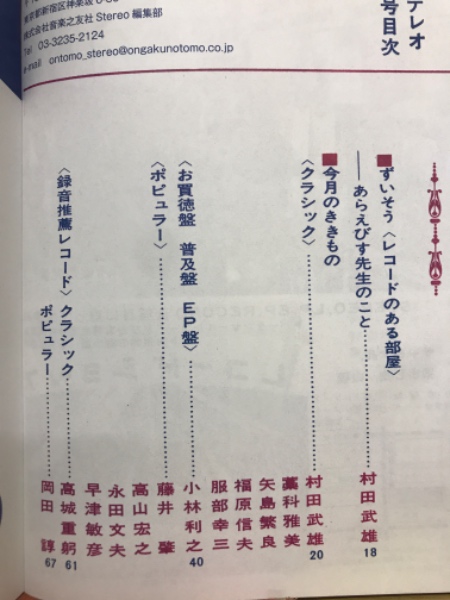 東京都新宿区神楽坂6-30
株式会社音楽之友社 Stereo 編集部
Tel 03-3235-2124
e-mail ontomo_stereo@ongakunotomo.co.jp
テレオ
号目次
■ずいそう〈レコードのある部屋〉
――あらえびす先生のこと……村田武雄 18
■今月のききもの
〈クラシック〉……村田武雄 20
藁科雅美
矢島繁良
福原信夫
服部幸三
〈お買徳盤 普及盤 EP盤〉……小林利之 40
〈ポピュラー〉……藤井肇
高山宏之
永田文夫
早津敏彦
〈録音推薦レコード〉クラシック……高城重躬 61
ポピュラー……岡田諄 67